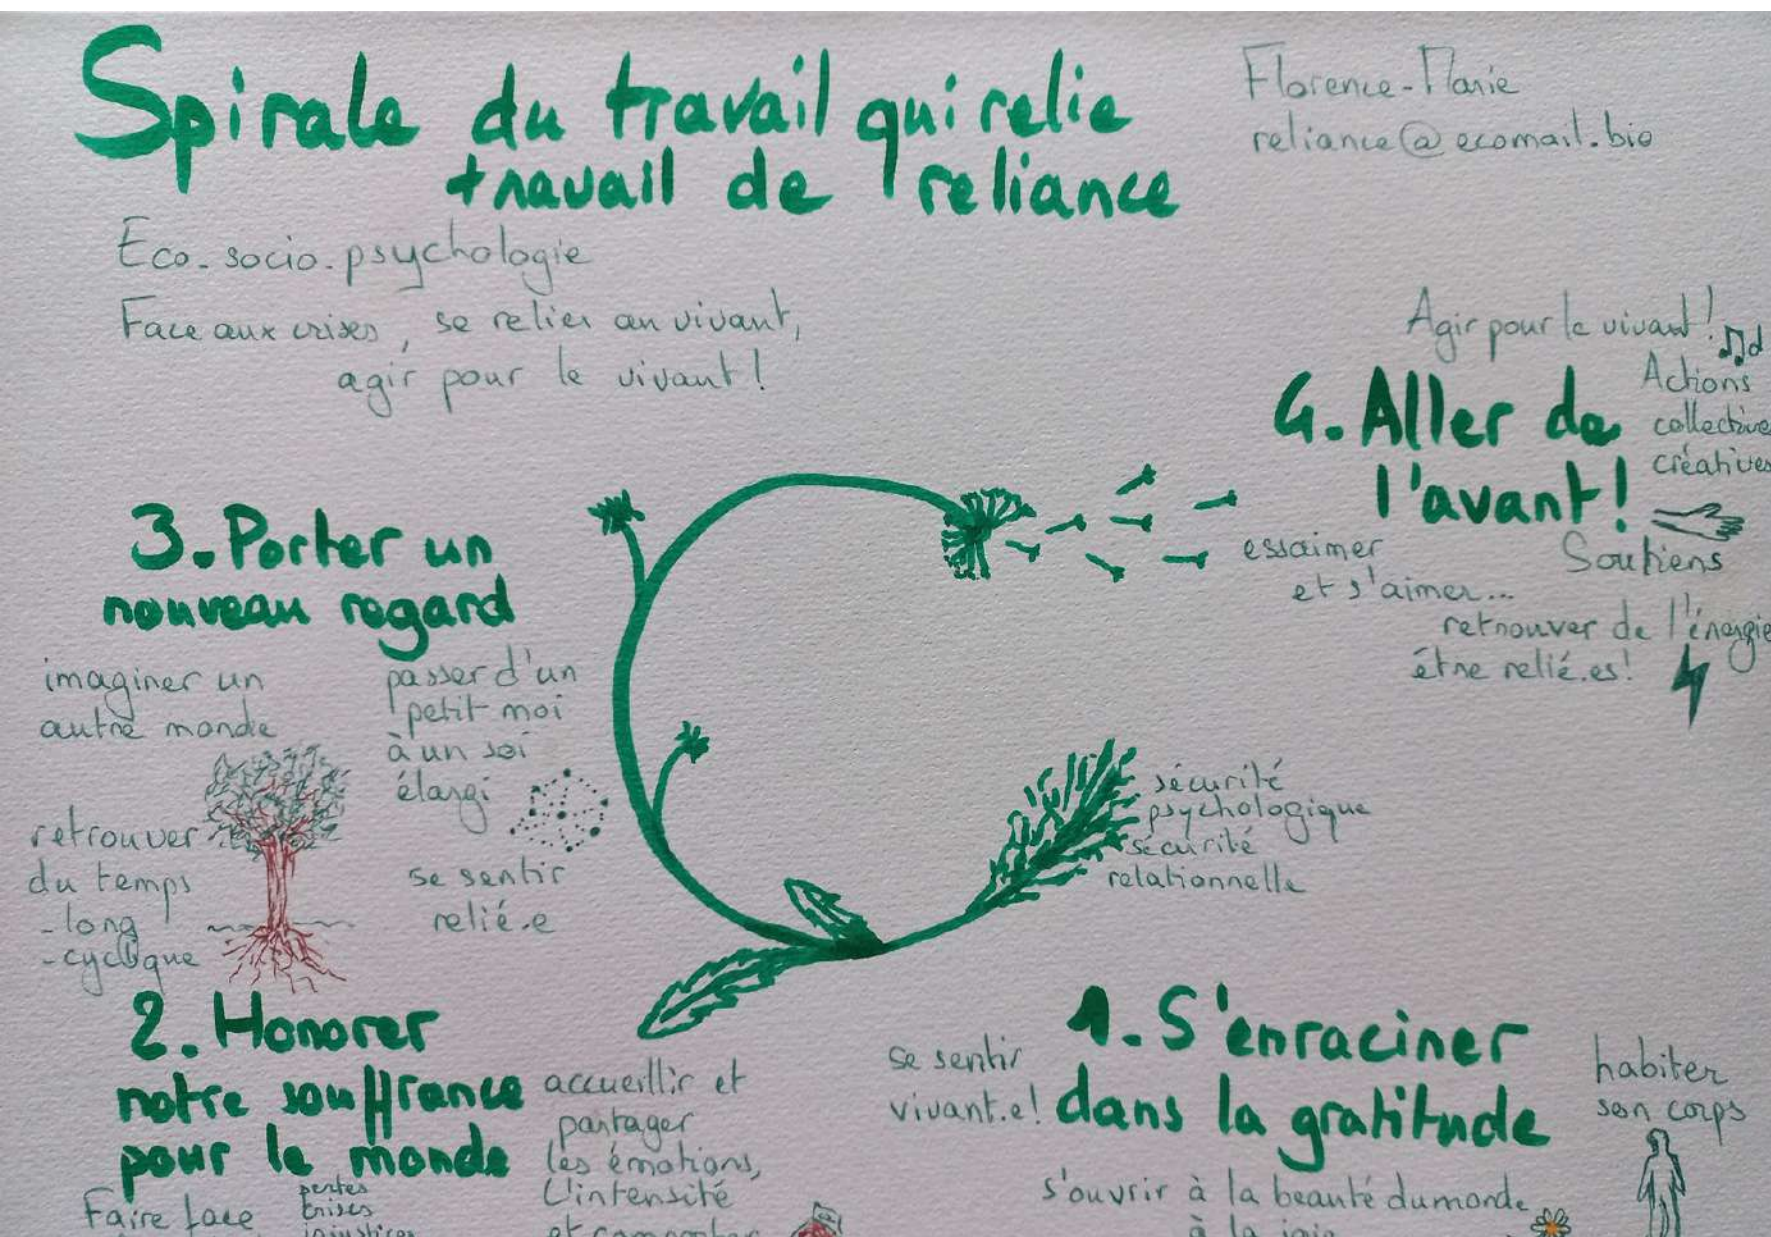 Spirale du travail qui relie
travail de reliance
Florence-Marie
reliance@ecomail.bio
Eco-socio-psychologie
Face aux crises, se relier au vivant,
agir pour le vivant !
Agir pour le vivant !
4. Aller de
l'avant !
Actions
collectives
créatives
Soutiens
essaimer
et s'aimer...
retrouver de l'énergie
être relié.es !
3. Porter un
nouveau regard
imaginer un
autre monde
passer d'un
petit moi
à un soi
élargi
retrouver
du temps
- long
- cyclique
se sentir
relié.e
sécurité
psychologique
sécurité
relationnelle
2. Honorer
notre souffrance
pour le monde
accueillir et
partager
les émotions,
l'intensité
Faire face
pertes
crises
injustices
1. S'enraciner
dans la gratitude
se sentir
vivant.e !
habiter
son corps
s'ouvrir à la beauté du monde
à la joie